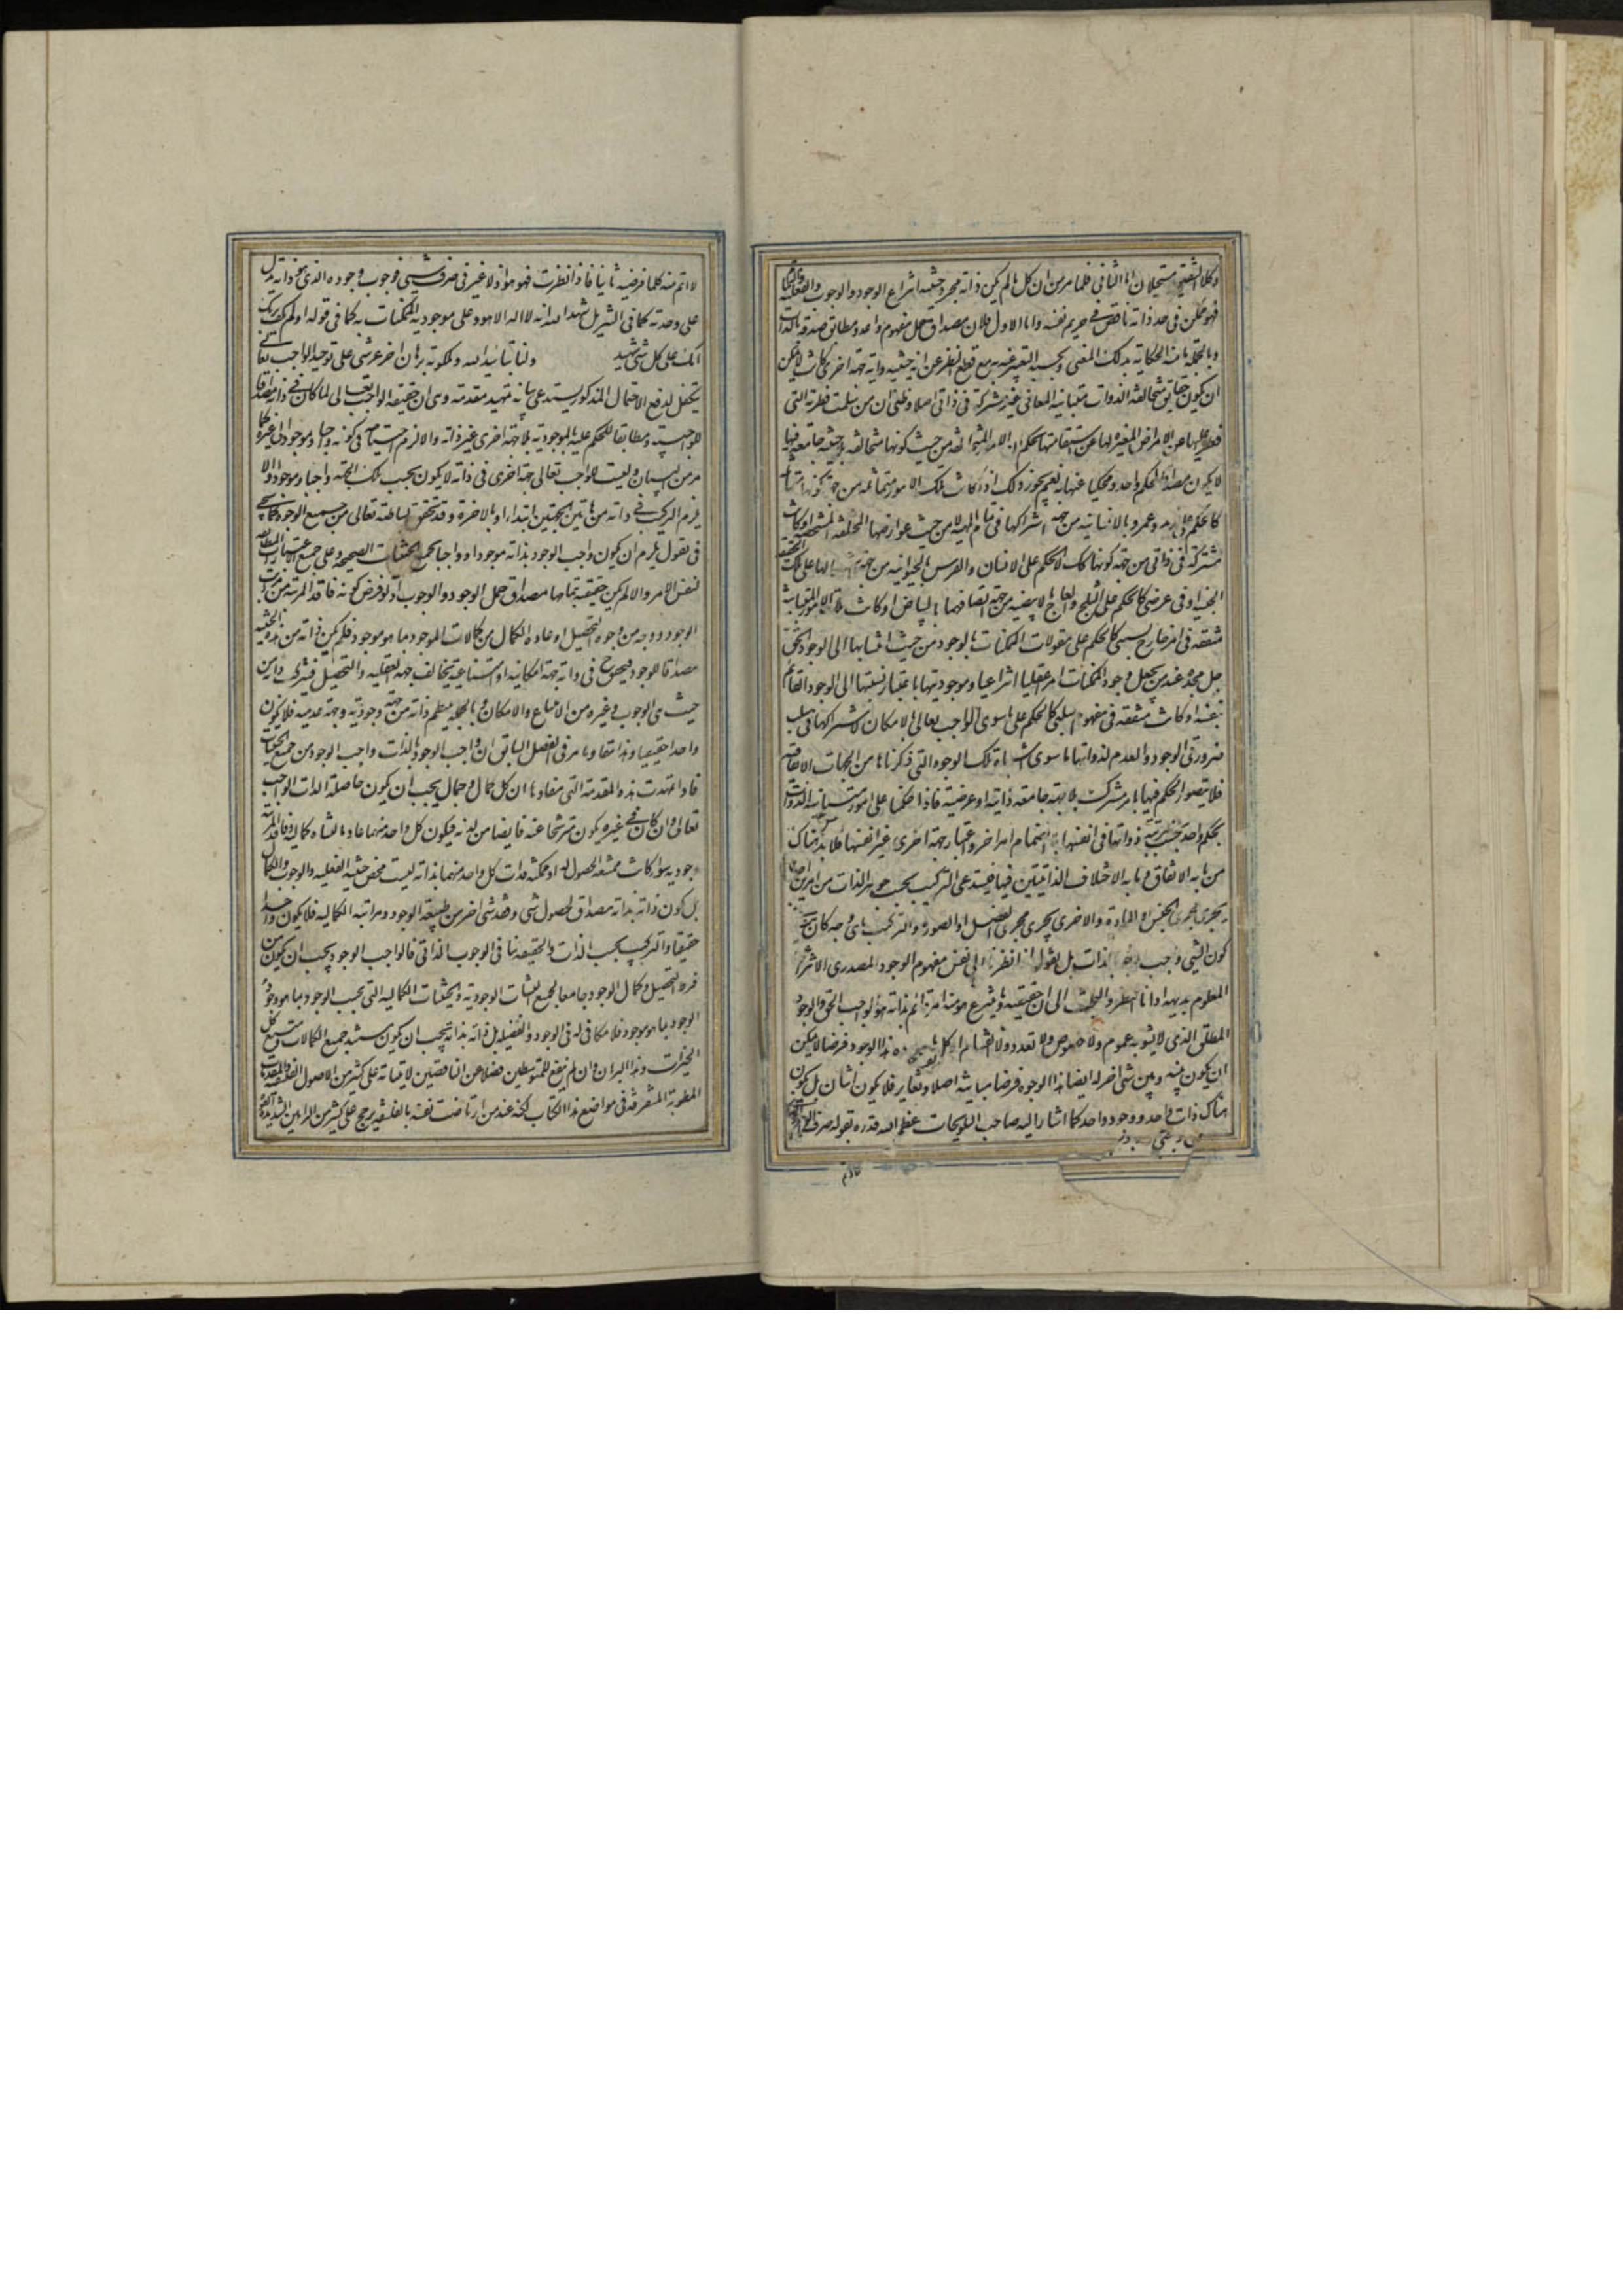 وكلا الشقين مستحيلان اما الثاني فلما مر من ان كل ما لم يكن ذاته مجرد حيثية انتزاع الوجود والوجوب والفعلية
فهو ممكن في حد ذاته ناقص في حريم نفسه واما الاول فلان مصداق حمل مفهوم واحد ومطابق صدقه بالذات
وبالجملة ما منه الحكاية بذلك المعنى وبحسبه التعبير عنه به مع قطع النظر عن اية حيثية واية جهة اخرى كانت لا يمكن
ان يكون حقايق متخالفة الذوات متباينة المعاني غير مشتركة في ذاتي اصلا وظني ان من سلمت فطرته التي
فطر عليها عن الامراض المغيرة لها عن استقامتها يحكم بان الامور المتخالفة من حيث كونها متخالفة بلا حيثية جامعة فيها
لا يكون مصداقا لحكم واحد ومحكيا عنها به نعم يجوز ذلك اذا كانت تلك الامور متماثلة من جهة كونها متماثلة
كالحكم على زيد وعمرو بالانسانية من جهة اشتراكهما في تمام المهية لا من حيث عوارضها المختلفة المشخصة او كانت
مشتركة في ذاتي من جهة كونها كذلك كالحكم على الانسان والفرس بالحيوانية من جهة
الجنسية او في عرضي كالحكم على الثلج والعاج بالابيضية من جهة اتصافهما بالبياض او كانت تلك الامور المتباينة
متفقة في امر خارج نسبي كالحكم على مقولات الممكنات بالوجود من حيث انتسابها الى الوجود الحق
جل مجده عند من يجعل وجود الممكنات امرا عقليا انتزاعيا وموجوديتها باعتبار نسبتها الى الوجود القائم
بنفسه او كانت متفقة في مفهوم سلبي كالحكم على ما سوى الواجب تعالى بالامكان لاشتراكها في سلب
ضرورتي الوجود والعدم لذواتها واما سوى اشباه تلك الوجوه التي ذكرناها من الجهات الاتفاقية
فلا يتصور الحكم فيها بامر مشترك بلا جهة جامعة ذاتية او عرضية فاذا حكمنا على امور متباينة الذوات
بحكم واحد بحسب مرتبة ذواتها في انفسها بلا انضمام امر اخر واعتبار جهة اخرى غير انفسها فلا بد هناك
من ما به الاتفاق وما به الاختلاف الذاتيتين فيها فيستدعي التركيب بحسب جوهر الذات من امرين
يجري مجرى الجنس او المادة والاخرى يجري مجرى الفصل او الصورة والتركيب باي وجه كان
كون الشي واجب بالذات بل نقول اذا نظرنا الى نفس مفهوم الوجود المصدري الانتزاعي
المعلوم بديهة ادانا النظر والبحث الى ان حقيقته وما ينتزع هو منه امر قائم بذاته هو الواجب الحق والوجود
المطلق الذي لا يشوبه عموم ولا خصوص ولا تعدد ولا انقسام اذ كل ما وجوده هذا الوجود فرضا لا يمكن
ان يكون بينه وبين شي اخر له ايضا هذا الوجود فرضا مباينة اصلا وتغاير فلا يكون اثنان بل يكون
هناك ذات واحد ووجود واحد كما اشار اليه صاحب التلويحات عظم الله قدره بقوله صرف الوجود
لا اتم منه كلما فرضته ثانيا فاذا نظرت فهو هو اذ لا غير في صرف شيء فوجوب وجوده الذي هو ذاته يدل
على وحدته كما في التنزيل شهد الله انه لا اله الا هو وعلى موجودية الممكنات به كما في قوله اولم يكف بربك
انك على كل شي شهيد ولنا بتأييد الله وملكوته برهان اخر عرشي على توحيد الواجب تعالى
يتكفل لدفع الاحتمال المذكور يستدعي بيانه تمهيد مقدمة وهي ان حقيقة الواجب تعالى لما كان في ذاته مصداقا
للواجبية ومطابقا للحكم عليه بالموجودية بلا جهة اخرى غير ذاته والا لزم احتياجه في كونه واجبا وموجودا الى غيره كما
مر من البيان وليست للواجب تعالى جهة اخرى في ذاته لا يكون بحسب تلك الجهة واجبا وموجودا والا
يلزم التركيب في ذاته من هاتين الجهتين ابتداء او بالاخرة وقد تحقق بساطته تعالى من جميع الوجوه كما سيجيء
فحينئذ نقول يلزم ان يكون واجب الوجود بذاته موجودا وواجبا بجميع الحيثيات الصحيحة وعلى جميع الاعتبارات المطابقة
لنفس الامر والا لم يكن حقيقته بتمامها مصداق حمل الوجود والوجوب اذ لو فرض كونه فاقدا لمرتبة من مراتب
الوجود ووجه من وجوه التحصيل او عادما لكمال من كمالات الموجود بما هو موجود فلم يكن ذاته من هذه الحيثية
مصداقا للوجود فيتحقق ح في ذاته جهة امكانية او امتناعية يخالف جهة الفعلية والتحصيل فيتركب ذاته من
حيثيتي الوجوب وغيره من الامتناع والامكان وبالجملة ينتظم ذاته من جهة وجودية وجهة عدمية فلا يكون
واحدا حقيقيا وهذا مفاد ما مر في الفصل السابق ان واجب الوجود بالذات واجب الوجود من جميع الحيثيات
فاذا تمهدت هذه المقدمة التي مفادها ان كل كمال وجمال يجب ان يكون حاصلة لذات الواجب
تعالى وان كان في غيره يكون مترشحا عنه فايضا من لدنه فيكون كل واحد منهما عادما لنشاة كمالية وفاقدا لمرتبة
وجودية سواء كانت ممتنعة الحصول له او ممكنة فذات كل واحد منهما بذاته ليست محض حيثية الفعلية والوجوب والكمال
بل كون ذاته بذاته مصداق لحصول شي وفقد شي اخر من طبيعة الوجود ومراتبه الكمالية فلا يكون واحدا
حقيقيا والتركيب بحسب الذات والحقيقة ينافي الوجوب الذاتي فالواجب الوجود يجب ان يكون من
فرط التحصيل وكمال الوجود جامعا لجميع النشآت الوجودية والحيثيات الكمالية التي بحسب الوجود بما هو وجود
الوجود بما هو موجود فلا مكافي له في الوجود والفضيلة بل ذاته بذاته يجب ان يكون مستند جميع الكمالات ومنبع كل
الخيرات وهذا البرهان وان لم ينفع للمتوسطين فضلا عن الناقصين لابتنائه على كثير من الاصول الفلسفية والمقدمات
المطوية المتفرقة في مواضع هذا الكتاب لكنه عند من ارتاضت نفسه بالفلسفة يرجح على كثير من البراهين الشديدة القوة